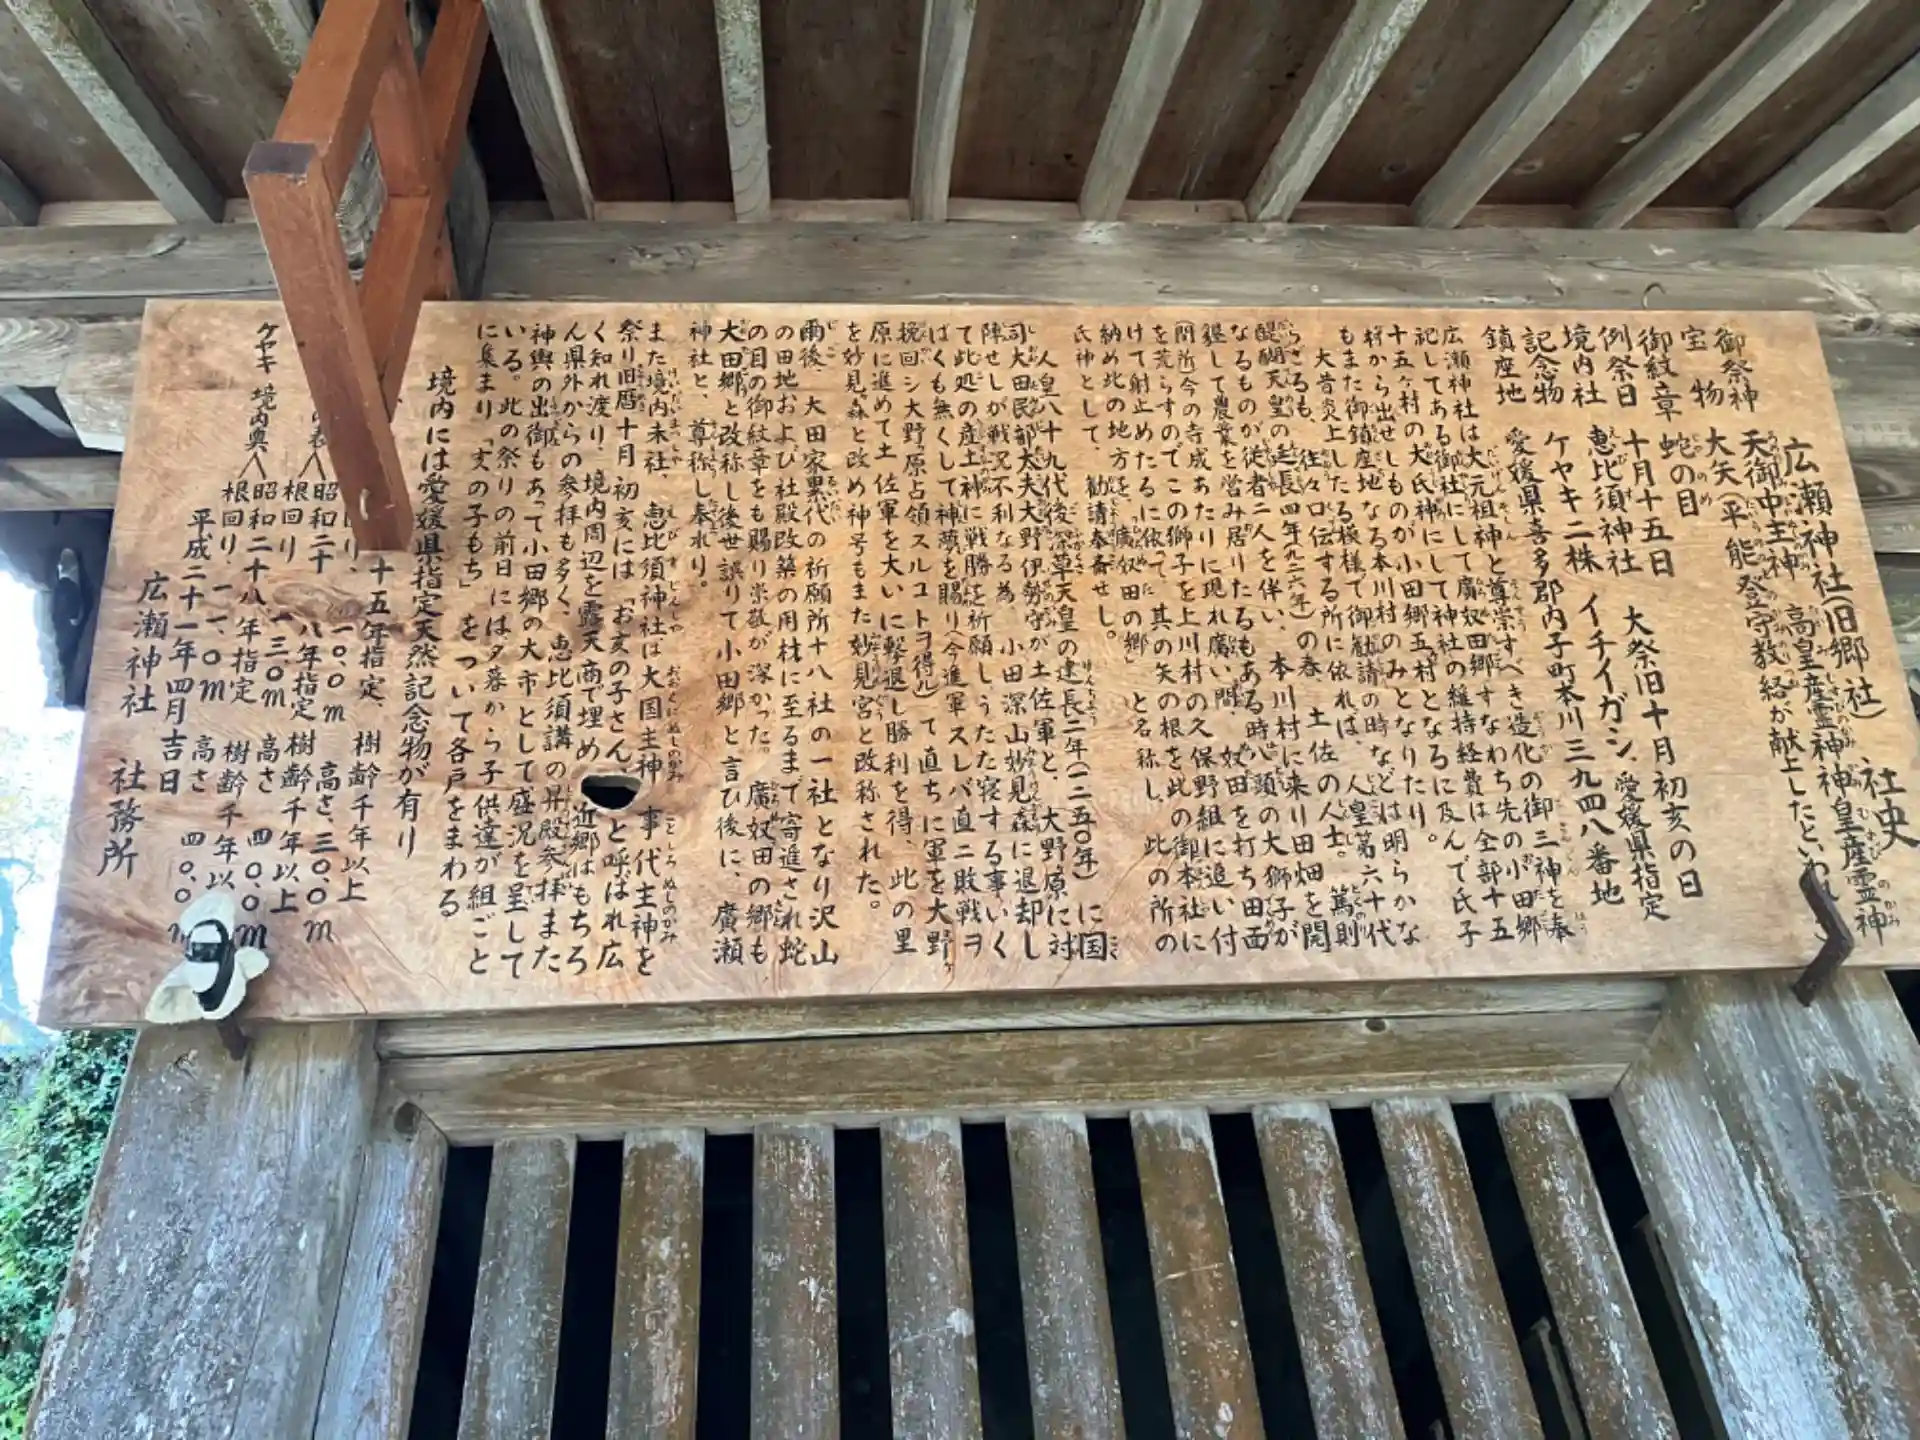 広瀬神社(旧郷社) 社史
御祭神 天御中主神 高皇産霊神 神皇産霊神
宝物 大矢(平能登守教経が献上したといわれ
御紋章 蛇の目
例祭日 十月十五日 大祭旧十月初亥の日
境内社 恵比須神社
記念物 ケヤキ二株 イチイガシ、愛媛県指定
鎮座地 愛媛県喜多郡内子町本川三九四八番地
広瀬神社は大元祖神と尊崇すべき造化の御三神を奉
記してある御社にして廣奴田郷すなわち先の小田郷
十五ヶ村の大氏神にして神社の維持経費は全部十五
村から出せしものが小田郷五村となるに及んで氏子
もまた御鎮座地なる本川村のみとなりたり。
大昔炎上したる模様で御勧請の時などは明らかな
らざるも、往々口伝する所に依れば、人皇第六十代
醍醐天皇の延長四年(九二六年)の春、土佐の人士。篤則
なるものが従者二人を伴い、本川村に来り田畑を開
墾して農業を営み居りたるもある時八頭の大獅子が
(間所)今の寺成あたりに現れ廣い間、奴田を打ち田面
を荒らすのでこの獅子を上川村の久保野組に追い付
けて射止めたるに依って其の矢の根を此の御本社に
納め此の地方を、「廣奴田の郷」と名称し、此の所の
氏神として、勧請奉斎せし。
人皇八十九代後深草天皇の建長二年(一二五〇年)に国
司大田民部太夫大野伊勢守が土佐軍と、大野原に対
陣せしが戦況不利なる為、小田深山妙見森に退却し
て此処の産土神に戦勝を祈願しうたた寝する事いく
ばくも無くして神夢を賜り(今進軍スレバ直ニ敗戦ヲ
挽回シ大野ヶ原占領スルコトヲ得ル)て直ちに軍を大野ヶ
原に進めて土佐軍を大いに撃退し勝利を得、此の里
を妙見ヶ森と改め神号もまた妙見宮と改称された。
爾後 大田家累代の祈願所十八社の一社となり沢山
の田地および社殿改築の用材に至るまで寄進され蛇
の目の御紋章をも賜り崇敬が深かった。廣奴田の郷も、
大田郷と改称し後世誤りて小田郷と言ひ後に、廣瀬
神社と、尊称し奉れり。
また境内末社、恵比須神社は大国主神 事代主神を
祭り旧暦十月初亥には「お亥の子さん」と呼ばれ広
く知れ渡り、境内周辺を露天商で埋め 近郷はもちろ
ん県外からの参拝も多く、恵比須講の昇殿参拝また
神輿の出御もあって小田郷の大市として盛況を呈して
いる。此の祭りの前日には夕暮から子供達が組ごと
に集まり「亥の子もち」をついて各戸をまわる
境内には愛媛県指定天然記念物が有り
十五年指定、樹齢千年以上
回り、一〇、〇m 高さ、三〇、〇m
昭和二十八年指定 樹齢千年以上
根回り 一三、〇m 高さ 四〇、〇m
ケヤキ 境内奥 昭和二十八、年指定 樹齢千年以
根回り、一一、〇m 高さ 四〇、〇m
平成二十一年四月吉日
広瀬神社 社務所